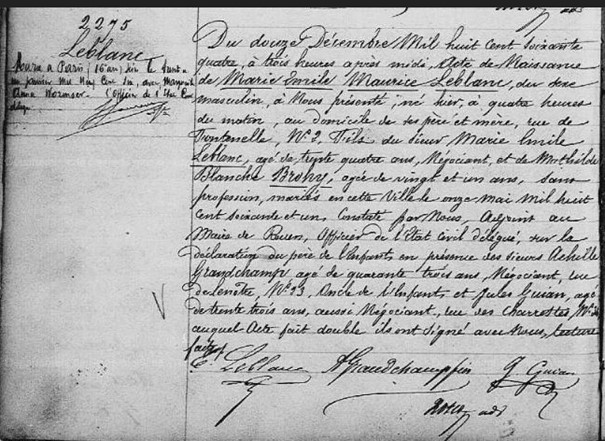 2275
Leblanc
Marié à Paris (16 arr) dix le
un janvier mil neuf cent six, avec
Anne Wormser. (Officier de l'
Du douze Décembre Mil huit Cent Soixante
quatre, à trois heures après midi, Acte de Naissance
de Marie Emile Maurice Leblanc, du sexe
masculin, à Nous présenté; né hier, à quatre heures
du matin, au domicile de ses père et mère, rue de
Fontenelle, N° 2, Fils du sieur Marie Emile
Leblanc, agé de trente quatre ans, Négociant, et de Mathilde
Blanche Brohy, agée de vingt et un ans, sans
profession, mariés en cette Ville le onze Mai Mil huit
Cent soixante et un. Constaté par Nous, Adjoint au
Maire de Rouen, Officier de l'Etat Civil délégué, sur la
déclaration du père de l'Enfant en présence des sieurs Achille
Grandchamp agé de quarante trois ans, Négociant, rue
de Lenôtre, N° 23, Oncle de l'Enfant et Jules Guian, agé
de trente trois ans, aussi Négociant, rue des Charrettes, N°
auquel Acte fait double ils ont signé avec Nous, lecture
faite.
E. Leblanc AGrandchamp fils J Guian
adj